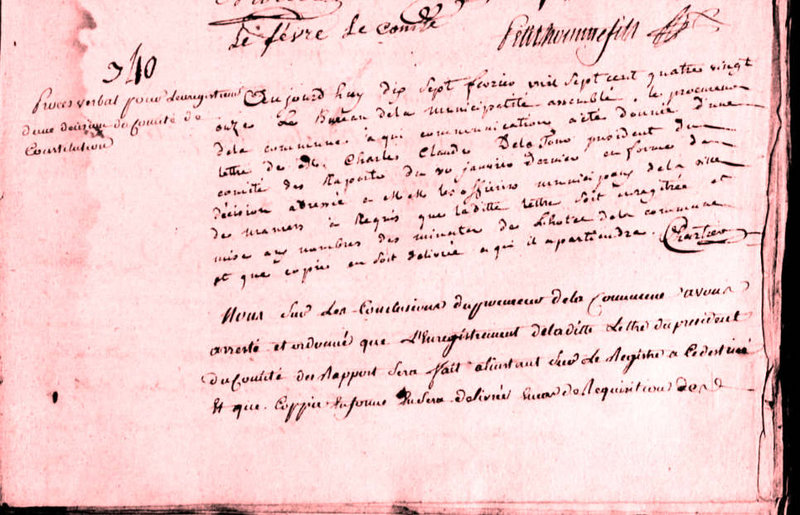 Le fêvre Le comte
340
Proces verbal pour Lenregistrem
dune décision du Comité de
Constitution
Aujourd huy dix sept fevrier mil sept cent quatre vingt
onze Le Bureau dela municipalité assemblé, le procureur
dela commune à qui communication a été donnée d'une
lettre de M. Charles Claude Delatour président du
comité des Raports du 20 janvier dernier en forme de
décision adressée a M M les officiers municipaux de la ville
a Requis que laditte lettre soit enregitrée et
mise au nombres des minutes de L'hotel de la commune
et que copie en soit delivrée a qui il apartiendra. Chartier
Nous Sur Les Conclusions du procureur dela Commune avons
arresté et ordonné que L'Enregistrement deladitte Lettre du president
du Comité des Rapport Sera fait alinstant Sur Le Registre a Ce destiné
Et que Coppie En forme En Sera delivrée Encas de Requisition de